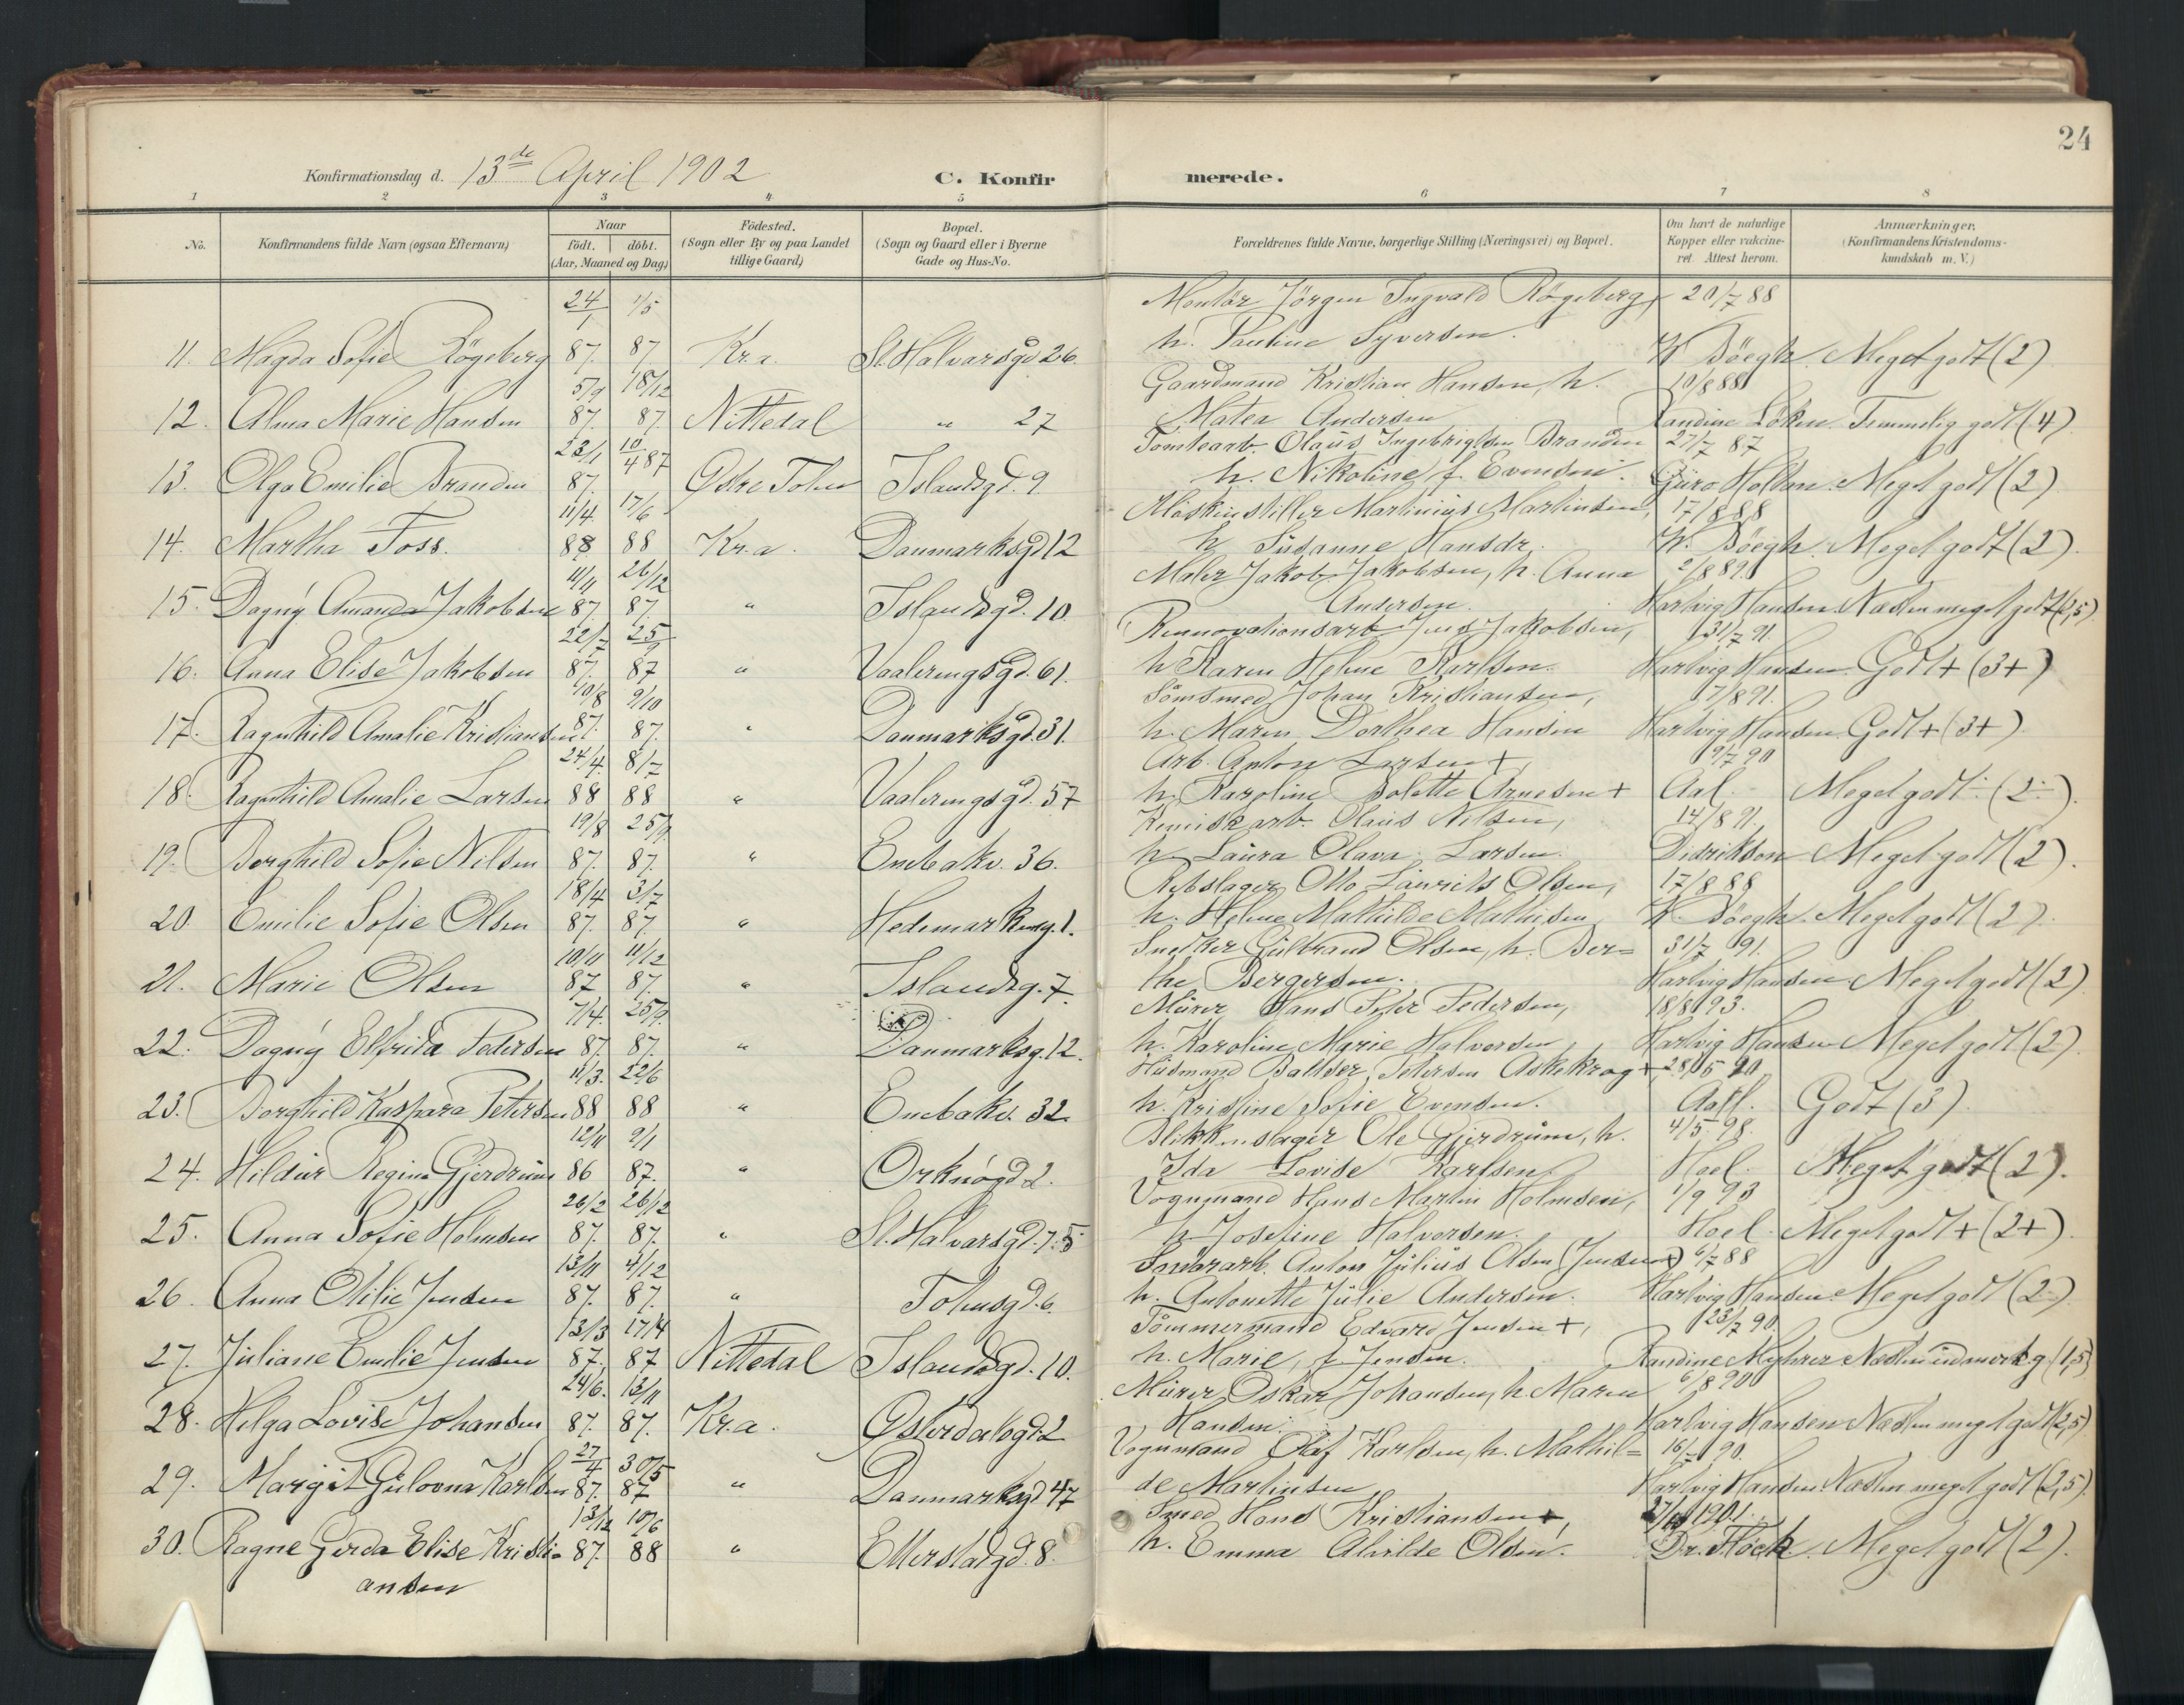 24
Konfirmationsdag d. 13de April 1902
C. Konfirmerede.
1 2 3 4 5 6 7 8
No. Konfirmandens fulde Navn (ogsaa Efternavn) Naar født. døbt. (Aar, Maaned og Dag) Födested. (Sogn eller By og paa Landet tillige Gaard) Bopæl. (Sogn og Gaard eller i Byerne Gade og Hus-No. Forældrenes fulde Navne, borgerlige Stilling (Næringsvei) og Bopæl. Om havt de naturlige Kopper eller vakcineret. Attest herom. Anmærkninger. (Konfirmandens Kristendomskundskab m. V.)
11. Magda Sofie Røgeberg 24/1 87. 1/5 87 Kr.a. St. Halvardsgd 26. Montør Jörgen Ingvald Røgeberg, h. Pauline Syversen. 20/7 88 W. Böegh. Meget godt (2)
12. Alma Marie Hansen 5/9 87. 18/12 87. Nittedal " 27 Gaardmand Kristian Hansen, h. Matea Andersen 10/8 88 Randine Löken Temmelig godt (4)
13. Olga Emilie Branden 22/1 87. 10/4 87 Østre Toten Islandsgd. 9. Tomtearb. Olaus Ingebrigtsen Branden h. Nikoline f. Evensen. 27/7 87 Guro Holdan. Meget godt (2)
14. Martha Foss. 11/4. 88 17/6 88 Kr.a. Danmarksgd 12 Maskinstiller Martinius Martinsen, h. Susanne Hansdr. 17/8 88 W. Böegh. Meget godt (2).
15. Dagny Amanda Jakobsen 11/11 87. 26/12 87. " Islandsgd. 10. Maler Jakob Jakobsen, h. Anna Andersen. 2/8 89. Hartvig Hansen. Næsten meget godt (2,5)
16. Anna Elise Jakobsen 22/7 87. 25/9 87 " Vaalerengsgd. 61. Rennovationsarb. Jens Jakobsen, h Karen Helene Karlsen. 31/7 91. Hartvig Hansen. Godt + (3+)
17. Ragnhild Amalie Kristiansen 10/8 87. 9/10 87. " Danmarksgd. 31. Sömsmed Johan Kristiansen, h. Maren Dorthea Hansen 7/8 91. Hartvig Hansen. Godt + (3+).
18. Ragnhild Amalie Larsen 24/4. 88 8/7 88 " Vaalerengsgd. 57 Arb. Anton Larsen +, h. Karoline Bolette Arnesen + 9/7 90 Aal. Meget godt ÷ (2÷).
19. Borghild Sofie Nilsen 19/8 87. 25/9. 87. " Enebakv. 36. Kemisk arb. Olaus Nilsen, h. Laura Olava Larsen. 14/8 91. Didriksen Meget godt (2).
20. Emilie Sofie Olsen 18/4 87. 3/7 87. " Hedemarkensg. 1. Rebslager Otto Laurits Olsen, h. Helene Mathilde Mathisen 17/8 88 W. Böegh. Meget godt (2).
21. Marie Olsen 10/11 87 11/12 87. " Islandsg. 7. Snedker Gulbrand Olsen, h. Ber= the Bergersen. 31/7 91. Hartvig Hansen Meget godt (2)
22. Dagny Elfrida Pedersen 7/4. 87. 25/9. 87. " Danmarksg. 12. Murer Hans Peter Pedersen, h. Karoline Marie Halvorsen 18/8 93. Hartvig Hansen Meget godt (2)
23. Borghild Kaspara Petersen 11/3. 88 22/6 88 " Enebakv. 32. Husmand Baltser Petersen Askekrog + h. Kristine Sofie Evensen. 28/5 90 Aall. Godt (3)
24. Hildur Regine Gjerdrum 12/11 86 9/1 87. " Orknögd 2. Blikkenslager Ole Gjerdrum, h. Ida Lovise Karlsen 4/5 98. Hoel. Meget godt (2).
25. Anna Sofie Holmsen 26/2 87. 26/12 87. " St. Halvarsgd. 75 Vognmand Hans Martin Holmsen, h. Josefine Halvorsen. 1/9 93 Hoel. Meget godt + (2+).
26. Anna Otilie Jensen 13/11 87. 4/12 87. " Tolensgd. 6. Anton Julius Olsen (Jensen) h. Antonette Julie Andersen. 6/7 88 Hartvig Hansen. Meget godt (2)
27. Juliane Emilie Jensen 13/3 87. 17/4 87 Nittedal Islandsgd. 10. Tömmermand Edvard Jensen +, h. Marie, f. Jensen. 23/7 90. Randine Myhrer Næsten udmerk.g. (1,5)
28. Helga Lovise Johansen 24/6. 87. 13/11 87. Kr.a. Østerdalsgd. 2 Murer Oskar Johansen, h. Maren Hansen. 6/8 90 Hartvig Hansen Næsten meget godt (2,5)
29. Margit Gulovna Karlsen 27/4 87. 30/5 87 " Danmarksgd 47 Vognmand Olaf Karlsen, h. Mathil= de Martinsen 16/7 90. Hartvig Hansen. Næsten meget godt (2,5).
30. Ragne Gerda Elise Kristiansen 13/12 87. 10/6 88 " Etterstadgd. 8. Smed Hans Kristiansen +, h. Emma Alvilde Olsen. 1901. Dr. Flöck. Meget godt (2).